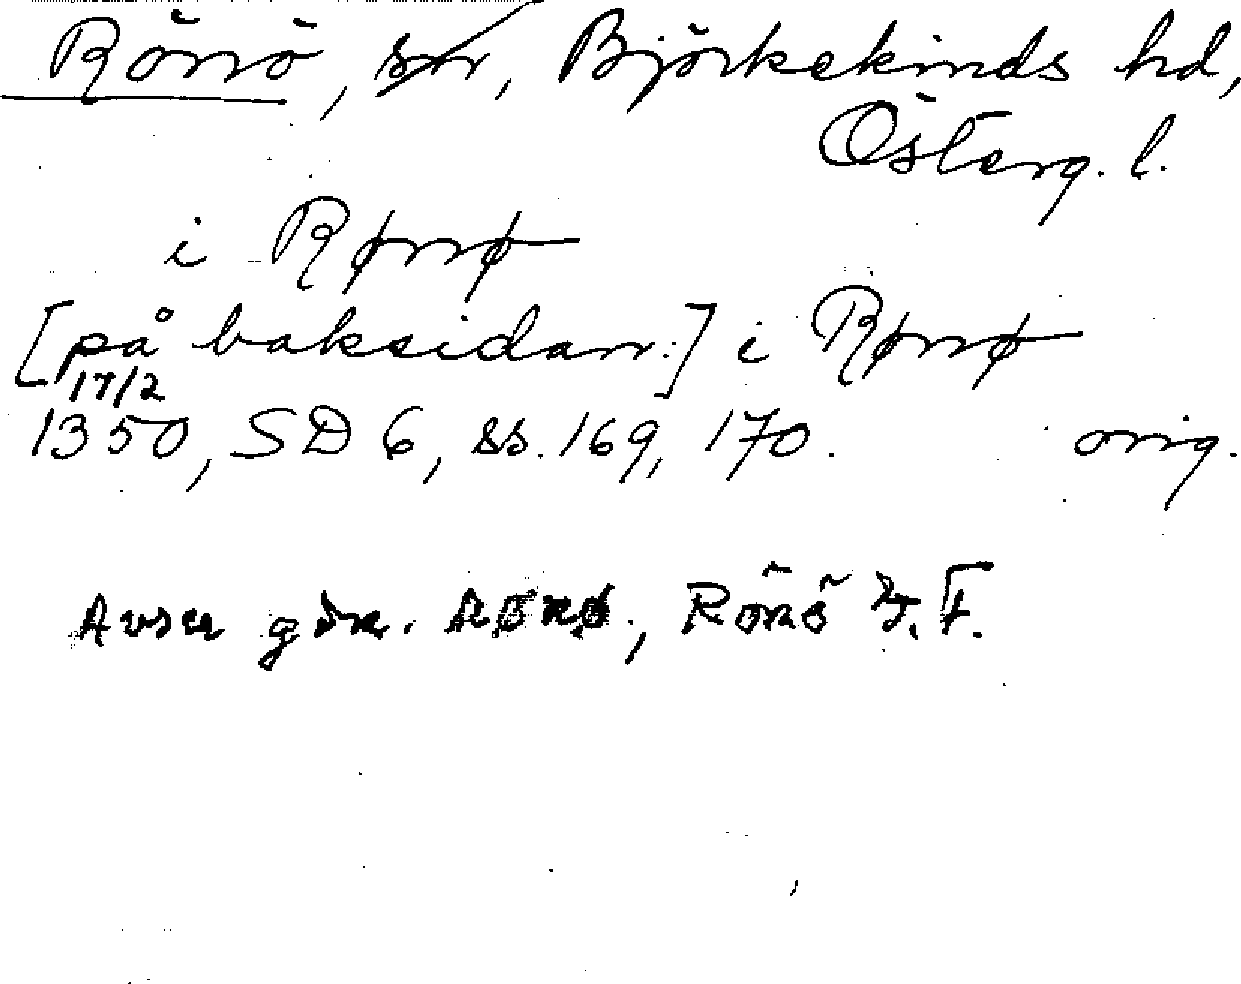 Rönö, sn, Björkekinds hd,
Österg. l.
i Rønø
[på baksidan:] i Rønø
17/2
1350, SD 6, ss. 169, 170. orig.
Avser gdn. Rönö, Rönö sn.